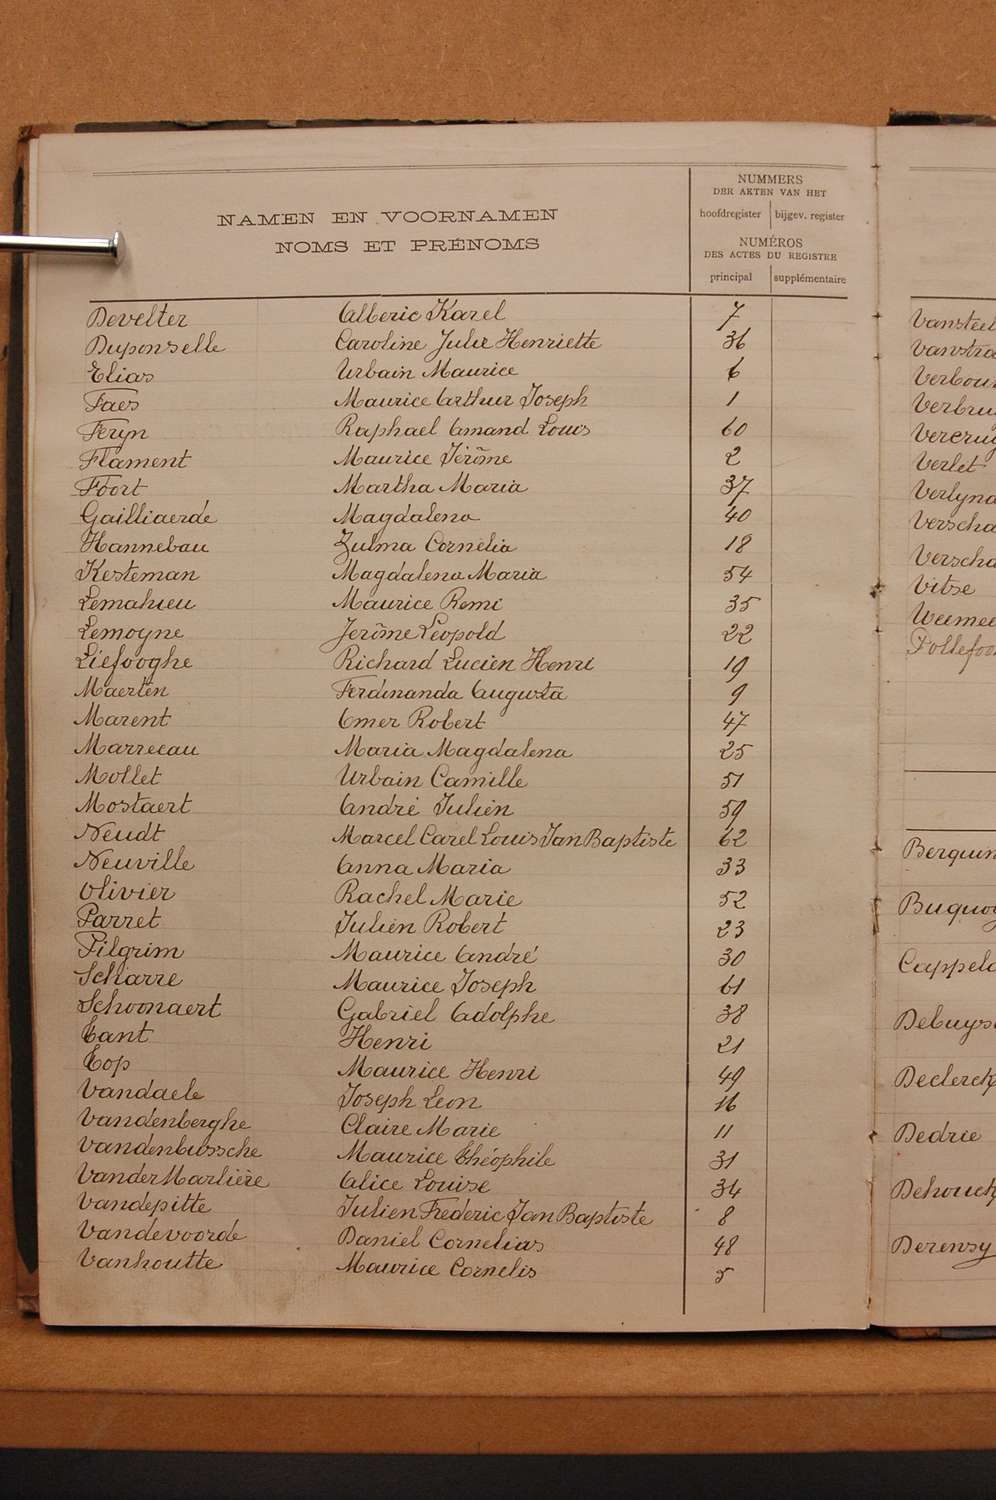 NAMEN EN VOORNAMEN
NOMS ET PRÉNOMS
NUMMERS
DER AKTEN VAN HET
hoofdregister bijgev. register
NUMÉROS
DES ACTES DU REGISTRE
principal supplémentaire
Develter Alberic Karel 7
Duponselle Caroline Julie Henriette 36
Elias Urbain Maurice 6
Faes Maurice Arthur Joseph 1
Feryn Raphael Amand Louis 60
Flament Maurice Jérôme 2
Foort Martha Maria 37
Gailliaerde Magdalena 40
Hannebau Zulma Cornelia 18
Kesteman Magdalena Maria 54
Lemahieu Maurice Remi 35
Lemoyne Jerôme Léopold 22
Liefooghe Richard Lucien Henri 19
Maerten Ferdinanda Augusta 9
Marent Omer Robert 47
Marrecau Maria Magdalena 25
Mollet Urbain Camille 51
Mostaert André Julien 59
Neudt Marcel Carel Louis Jan Baptiste 62
Neuville Anna Maria 33
Olivier Rachel Marie 52
Parret Julien Robert 23
Pilgrim Maurice André 30
Scharre Maurice Joseph 61
Schoonaert Gabriel Adolphe 38
Tant Henri 21
Top Maurice Henri 49
Vandaele Joseph Leon 16
Vandenberghe Claire Marie 11
Vandenbussche Maurice Théophile 31
VanderMarlière Alice Louise 34
Vandepitte Julien Frederic Jan Baptiste 8
Vandevoorde Daniel Cornelias 48
Vanhoutte Maurice Cornelis 5
Vansteel
Vanstra
Verbou
Verbru
Vercruy
Verlet
Verlynd
Verscha
Verscha
Vitse
Weemee
Dollefoo
Berquin
Buquoy
Cappela
Debuys
Declerck
Dedrie
Dehouck
Derensy